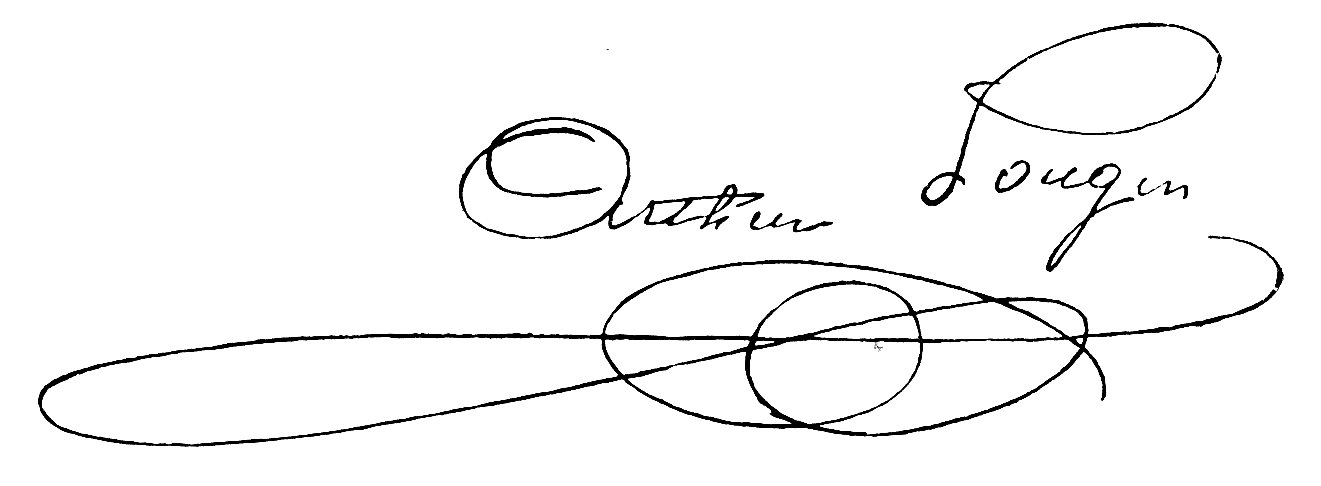 Arthur Pougin